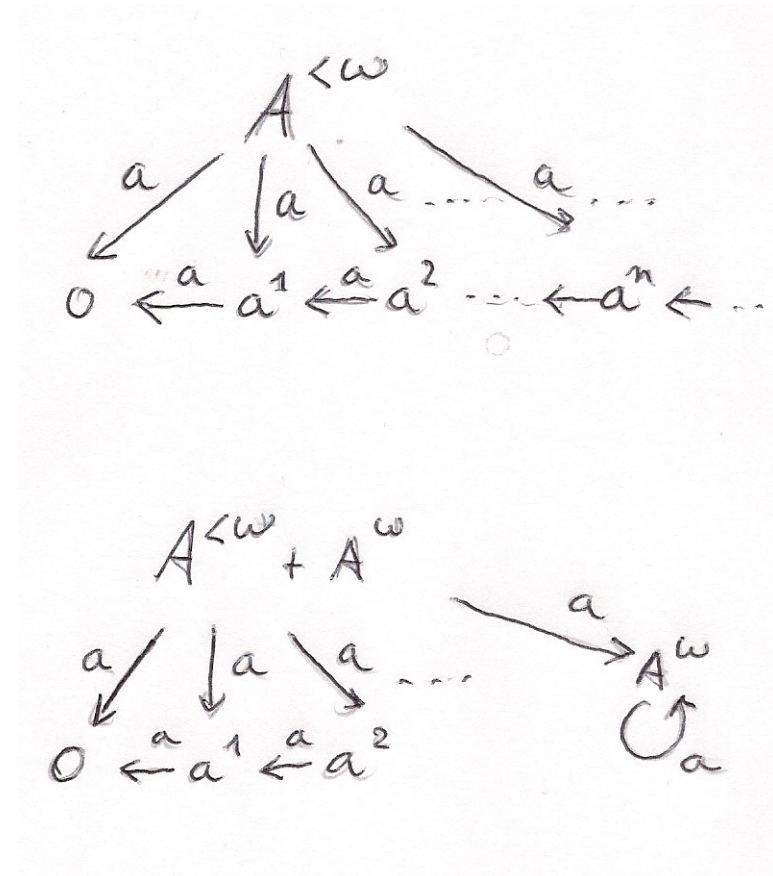 A^{<ω}
a a a ..... a ....
0 ←a a¹ ←a a² ..... ← aⁿ ← ...
A^{<ω} + A^ω
a
a a a ....
A^ω
0 ←a a¹ ←a a²
a